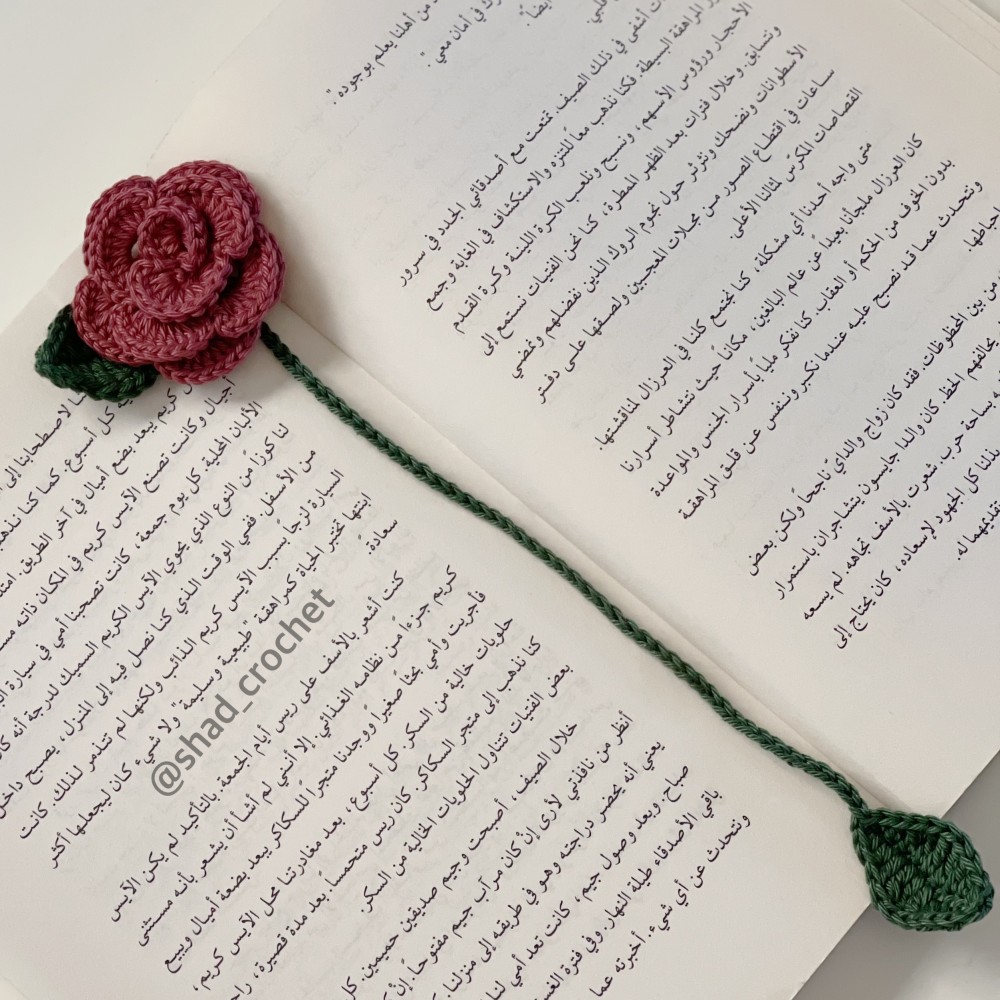 من أهلنا يعلم بوجوده".
الأحجار ورؤوس الأسهم، ونسبح ونلعب الكرة اللينة وكرة القدم
وتتسابق. وخلال فترات بعد الظهر الممطرة، كنا نحن الفتيات نستمع إلى
الأسطوانات ونضحك ونثرثر حول نجوم الروك الذين نفضلهم ونمضي
ساعات في اقتطاع الصور من مجلات المعجبين ولصقها على دفتر
القصاصات المكرّس لمثالنا الأعلى.
متى واجه أحدنا أي مشكلة، كنا نجتمع كلنا في العرزال لمناقشتها
كان العرزال ملجأنا بعيداً عن عالم البالغين، مكاناً حيث نتشاطر أسرارنا
بدون الخوف من الحكم أو العقاب. كنا نفكر ملياً بأسرار الجنس والمواعدة
ونتحدث عما قد نصبح عليه عندما نكبر وننفس عن قلق المراهقة
من بين المحظوظات. فقد كان زواج والداي ناجحاً ولكن بعض
يحالفهم الحظ. كان والدا جايسون يتشاجران باستمرار
ساحة حرب. شعرت بالأسف تجاهه. لم يسعه
كل الجهود لإسعاده، كان يحتاج إلى
تقديمهما له.
أجيال وكانت تصنع الآيس كريم في المكان ذاته
الألبان المحلية. كل يوم جمعة، كانت تصحبنا أمي في سيارة
لنا كوزاً من النوع الذي يحوي الآيس الكريم السميك لدرجة أنه كان
من الأسفل. ففي الوقت الذي كنا نصل فيه إلى المنزل، يصبح داخل
السيارة لزجاً بسبب الآيس كريم الذائب ولكنها لم تتذمر لذلك. كانت
ابنتها تختبر الحياة كمراهقة "طبيعية وسليمة" ولا شيء كان ليجعلها أكثر
سعادة.
كنت أشعر بالأسف على ريس أيام الجمعة. بالتأكيد لم يكن الآيس
كريم جزءاً من نظامه الغذائي. إلا أنني لم أشأ أن يشعر بأنه مستثنى
فأجريت وأمي بحثاً صغيراً ووجدنا متجراً للسكاكر يبعد بضعة أميال ويبيع
حلويات خالية من السكر. كل أسبوع، بعد مغادرتنا محل الآيس كريم،
كنا نذهب إلى متجر السكاكر. كان ريس متحمساً. بعد مدة قصيرة، راح
بعض الفتيات يتناول الحلويات الخالية من السكر.
خلال الصيف، أصبحت وجيم صديقين حميمين. كل
أنظر من نافذتي لأرى إنْ كان مرآب جيم مفتوحاً. إنْ
يعني أنه يحضر دراجته وهو في طريقه إلى منزلنا.
صباح. وبعد وصول جيم، كانت تعد أمي لنا
باقي الأصدقاء طيلة النهار. وفي فترة
ونتحدث عن أي شيء. أخبرته عما
@shad_crochet